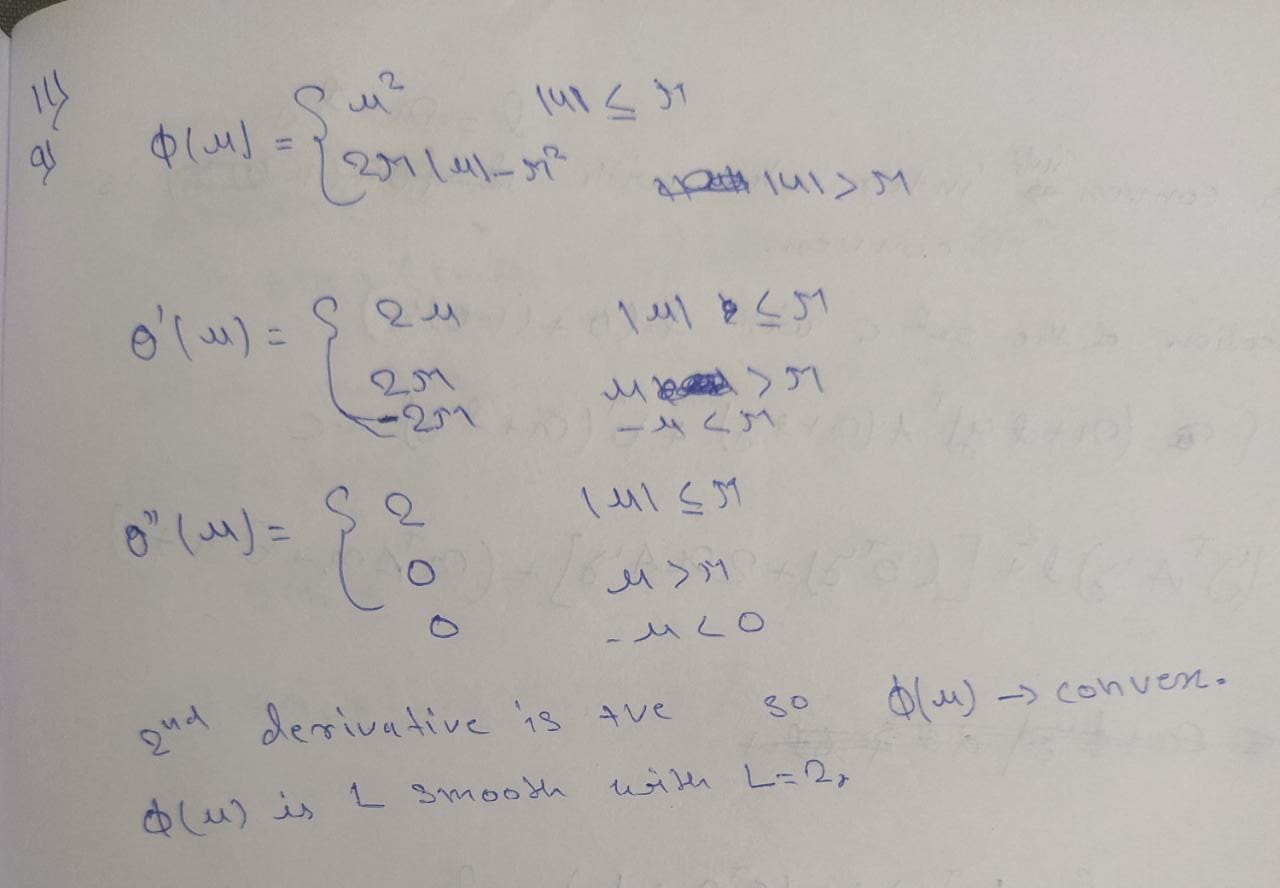 11)
a) φ(u) = { u² |u| ≤ M
2M|u| - M² |u| > M
φ'(u) = { 2u |u| ≤ M
2M u > M
-2M -u < M
φ''(u) = { 2 |u| ≤ M
0 u > M
0 -u < 0
2nd derivative is +ve so φ(u) → convex.
φ(u) is L smooth with L=2,